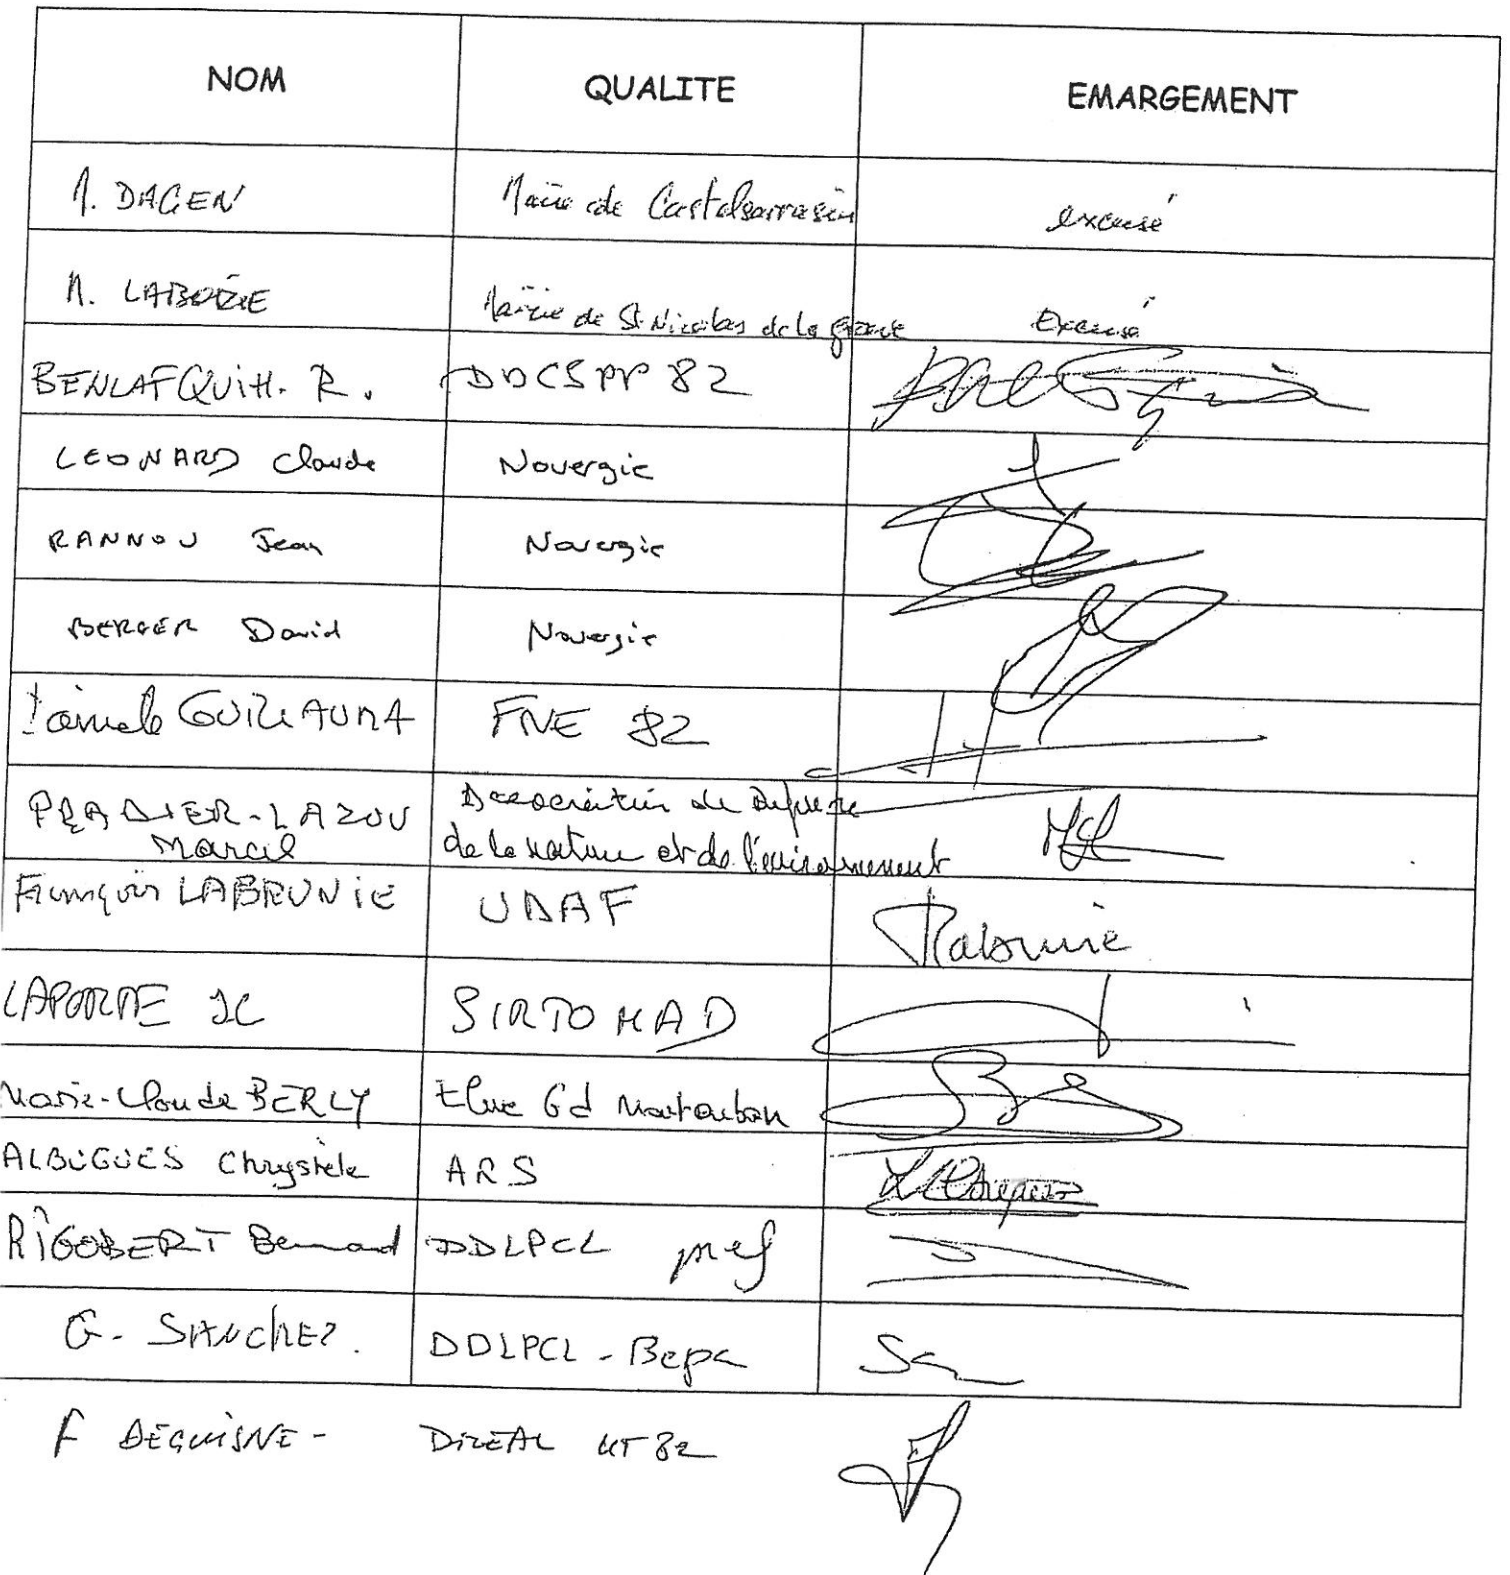 NOM QUALITE EMARGEMENT
M. DAGEN Mairie de Castelsarrasin excusé
M. Mairie de St Nicolas de la Grave Excusé
BENLAFQUIH. R. DDCSPP 82
LEONARD Claude Novergie
RANNOU Jean Novergie
BERGER David Novergie
GUILLAUMA FNE 82
PRADIER-LAZOU Association de Défense
Marcel de la nature et de l'environnement
François LABRUNIE UDAF Labrunie
LAPORTE JC SIRTOMAD
Marie-Claude BERLY Elue Gd Montauban
ALBUGUES Chrystele ARS
RIGOBERT Bernard DDLPCL pref
G. SANCHEZ. DDLPCL - Bepa
F DEQUISNE - DREAL UT 82